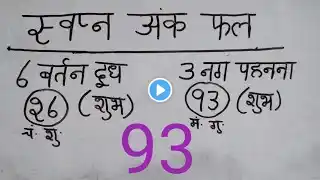 स्वप्न अंक फल
6 बर्तन दूध
26 (शुभ)
चं. शु.
3 नग पहनना
93 (शुभ)
मं. गु.
93